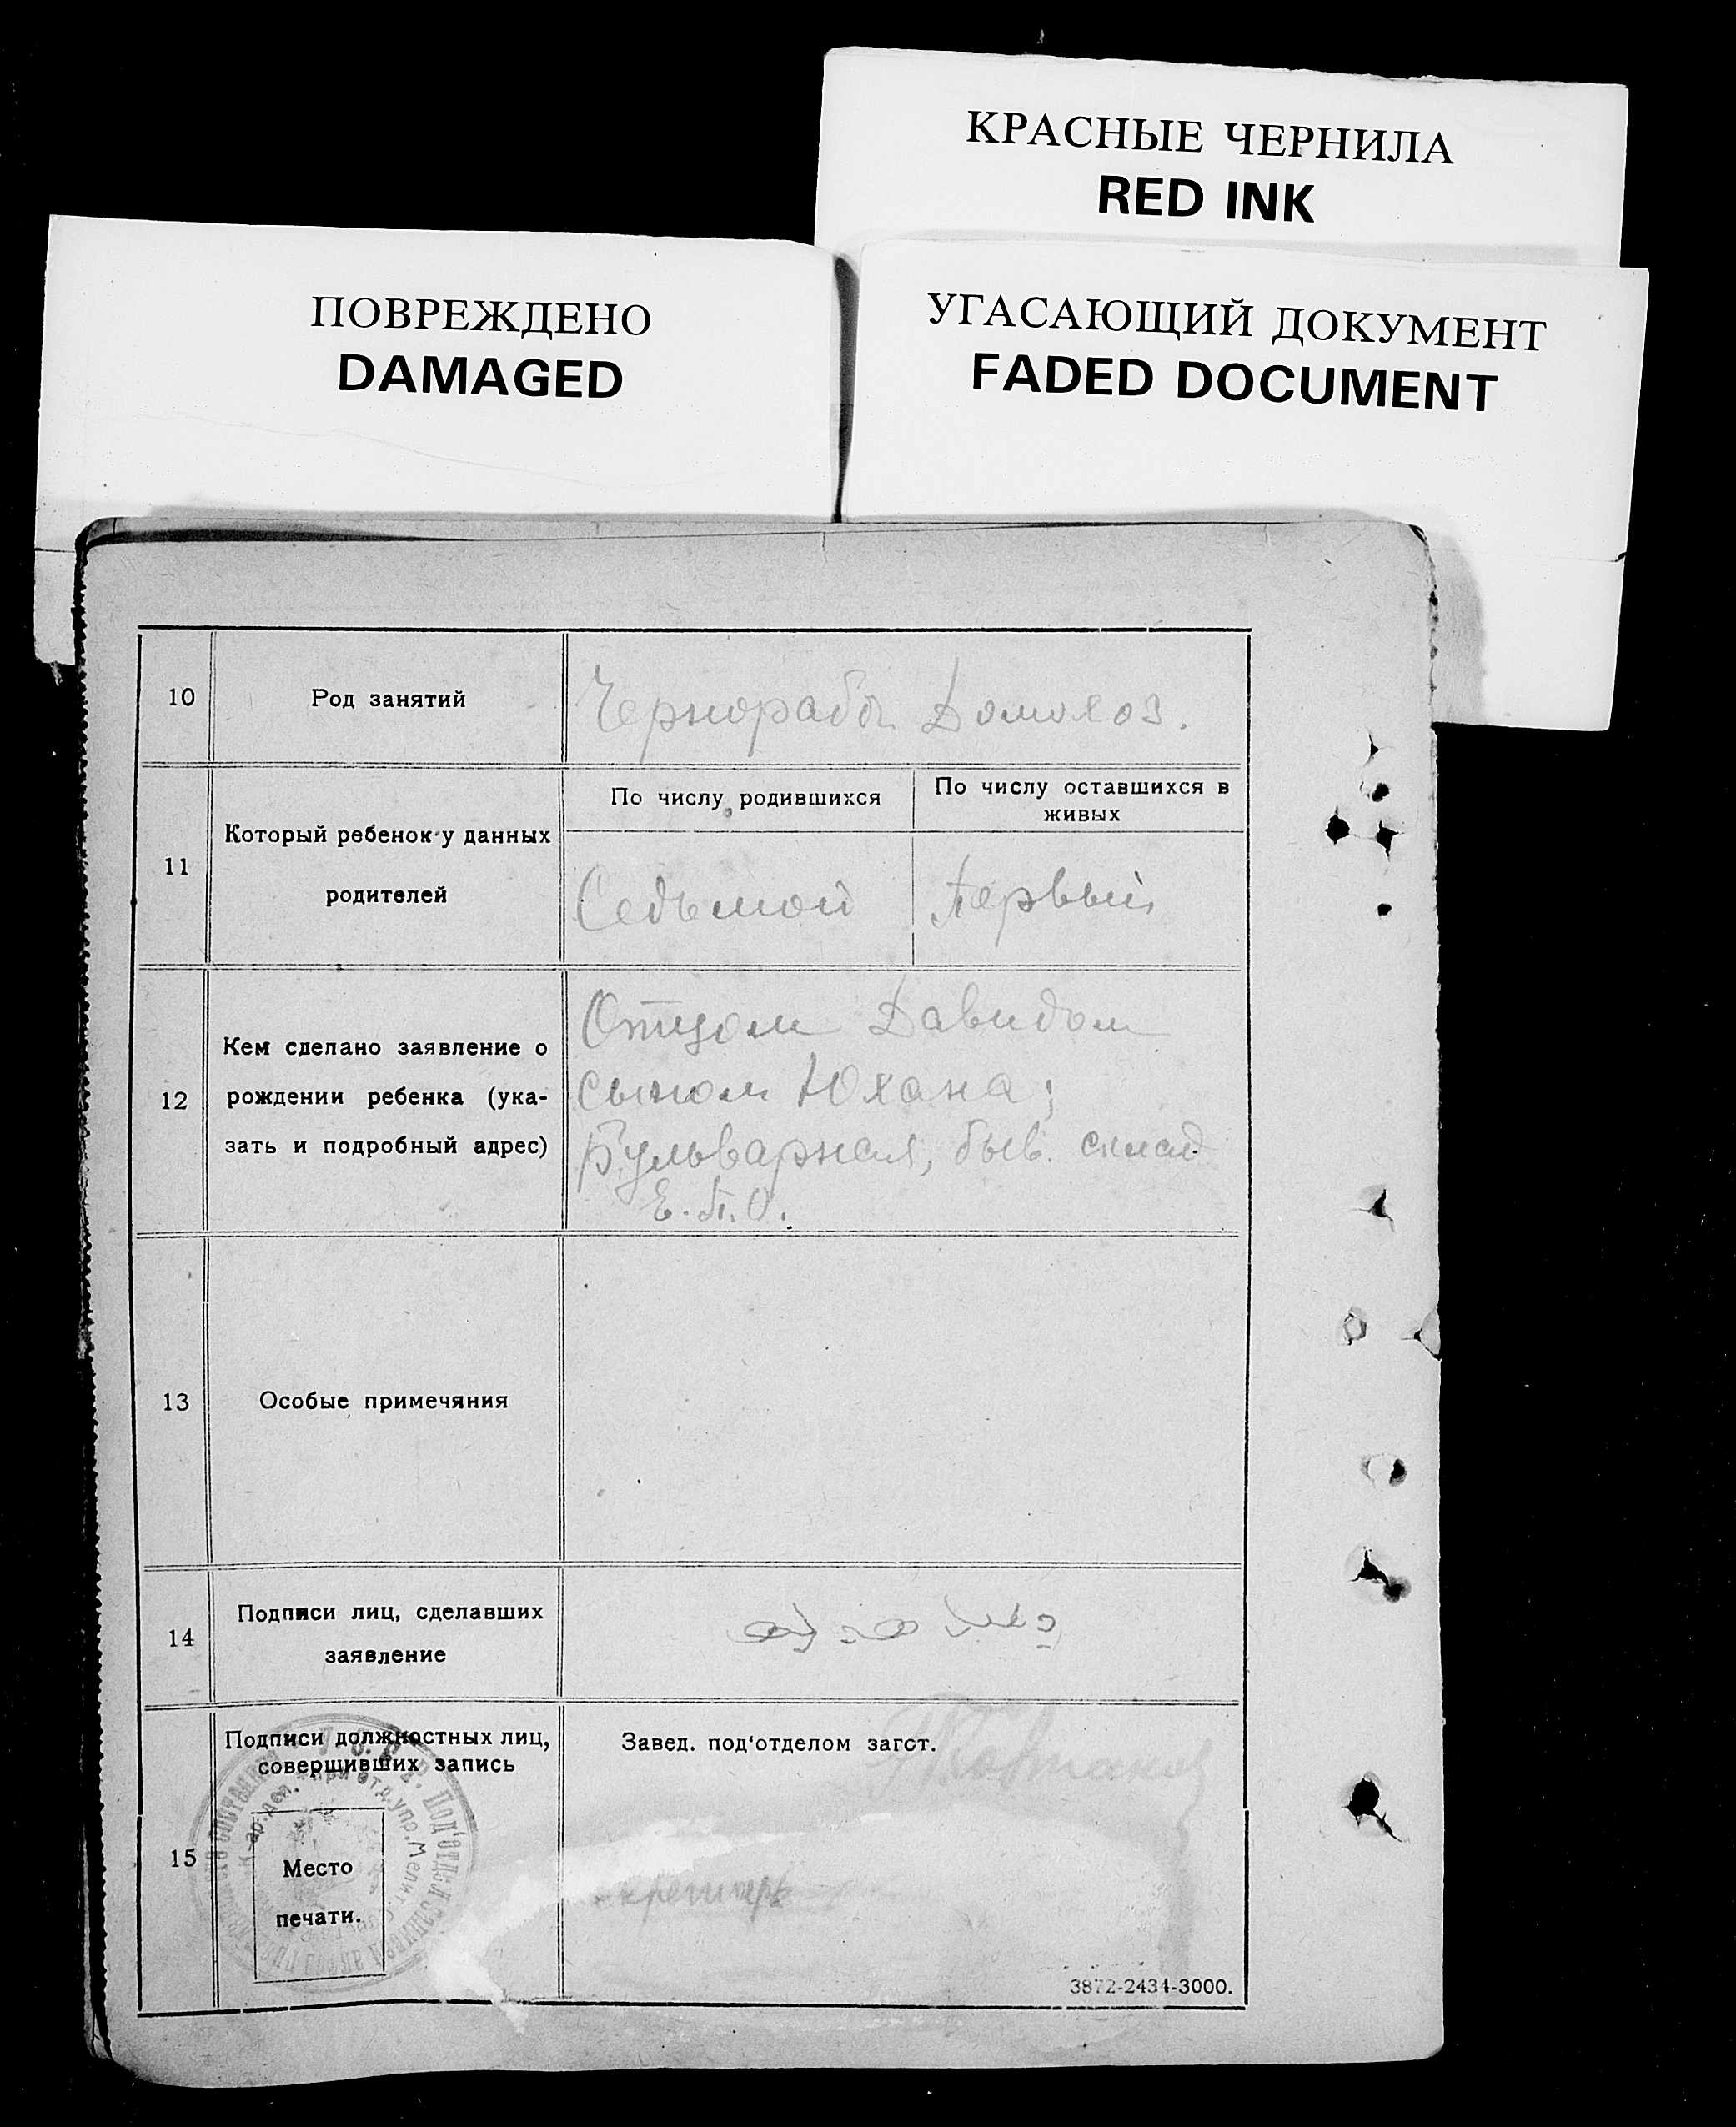 КРАСНЫЕ ЧЕРНИЛА
RED INK
ПОВРЕЖДЕНО
DAMAGED
УГАСАЮЩИЙ ДОКУМЕНТ
FADED DOCUMENT
10
Род занятий
Чернорабоч. Домохоз.
11
Который ребенок у данных
родителей
По числу родившихся
По числу оставшихся в
живых
Седьмой
Первый
12
Кем сделано заявление о
рождении ребенка (ука-
зать и подробный адрес)
Отцом Давидом
сыном Юхана;
Бульварная, быв. склад
Е.П.О.
13
Особые примечяния
14
Подписи лиц, сделавших
заявление
15
Подписи должностных лиц,
совершивших запись
Место
печати.
Завед. под'отделом загст.
3872-2434-3000.